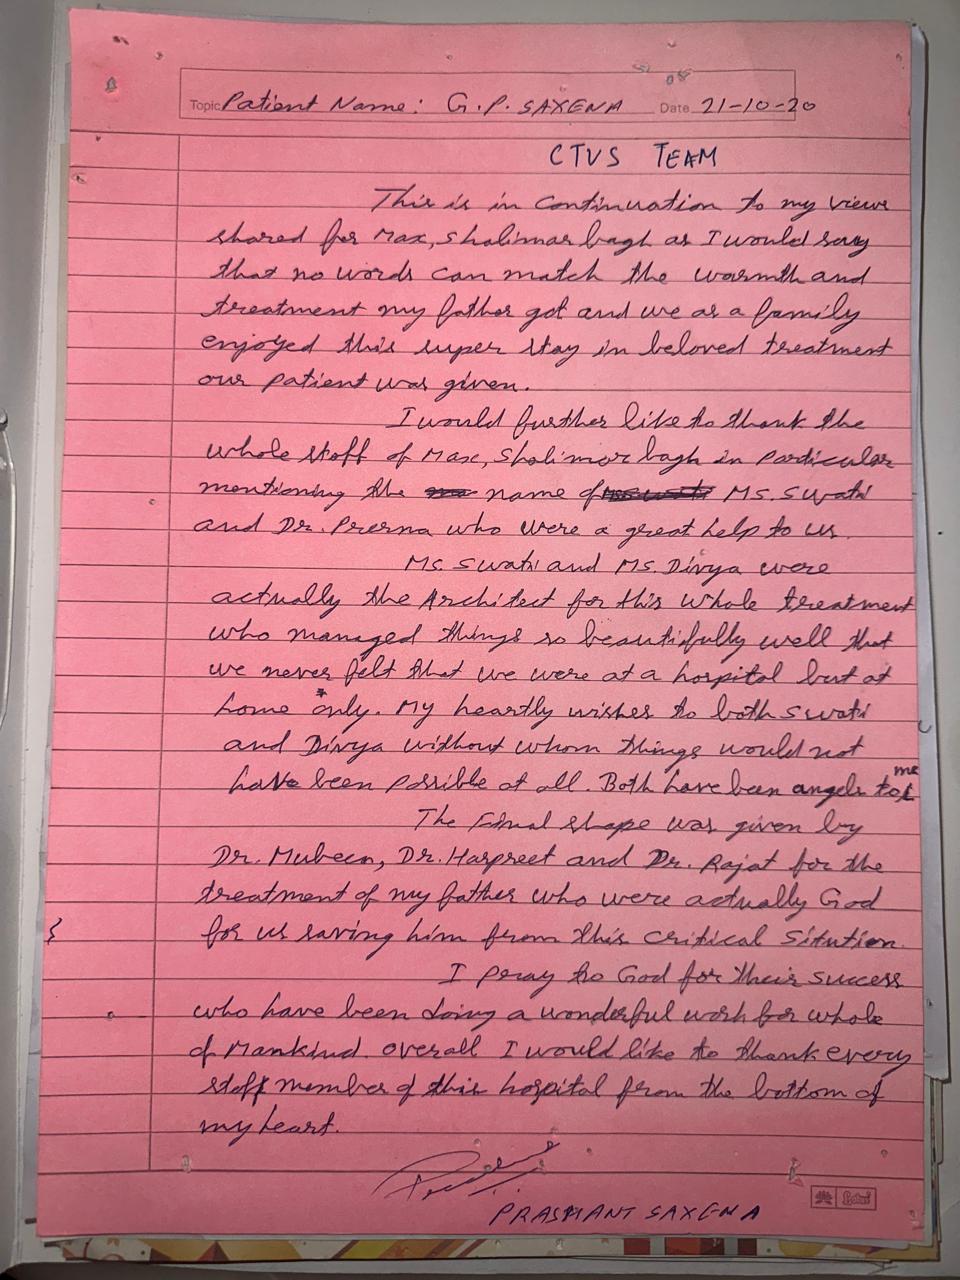 Topic Patient Name: G.P. SAXENA Date 21-10-20
CTVS TEAM
This is in continuation to my views
shared for Max, Shalimar bagh as I would say
that no words can match the warmth and
treatment my father got and we as a family
enjoyed this super stay in beloved treatment
our patient was given.
I would further like to thank the
whole staff of Max, Shalimar bagh in particular
mentioning the name of Ms. Swati
and Dr. Prerna who were a great help to us.
Ms. Swati and Ms. Divya were
actually the Architect for this whole treatment
who managed things so beautifully well that
we never felt that we were at a hospital but at
home only. My heartly wishes to both Swati
and Divya without whom things would not
have been possible at all. Both have been angels to me
The Final shape was given by
Dr. Mubeen, Dr. Harpreet and Dr. Rajat for the
treatment of my father who were actually God
for us saving him from this critical sitution.
I pray to God for their success
who have been doing a wonderful work for whole
of Mankind. Overall I would like to thank every
staff member of this hospital from the bottom of
my heart.
PRASHANT SAXENA
Lotus